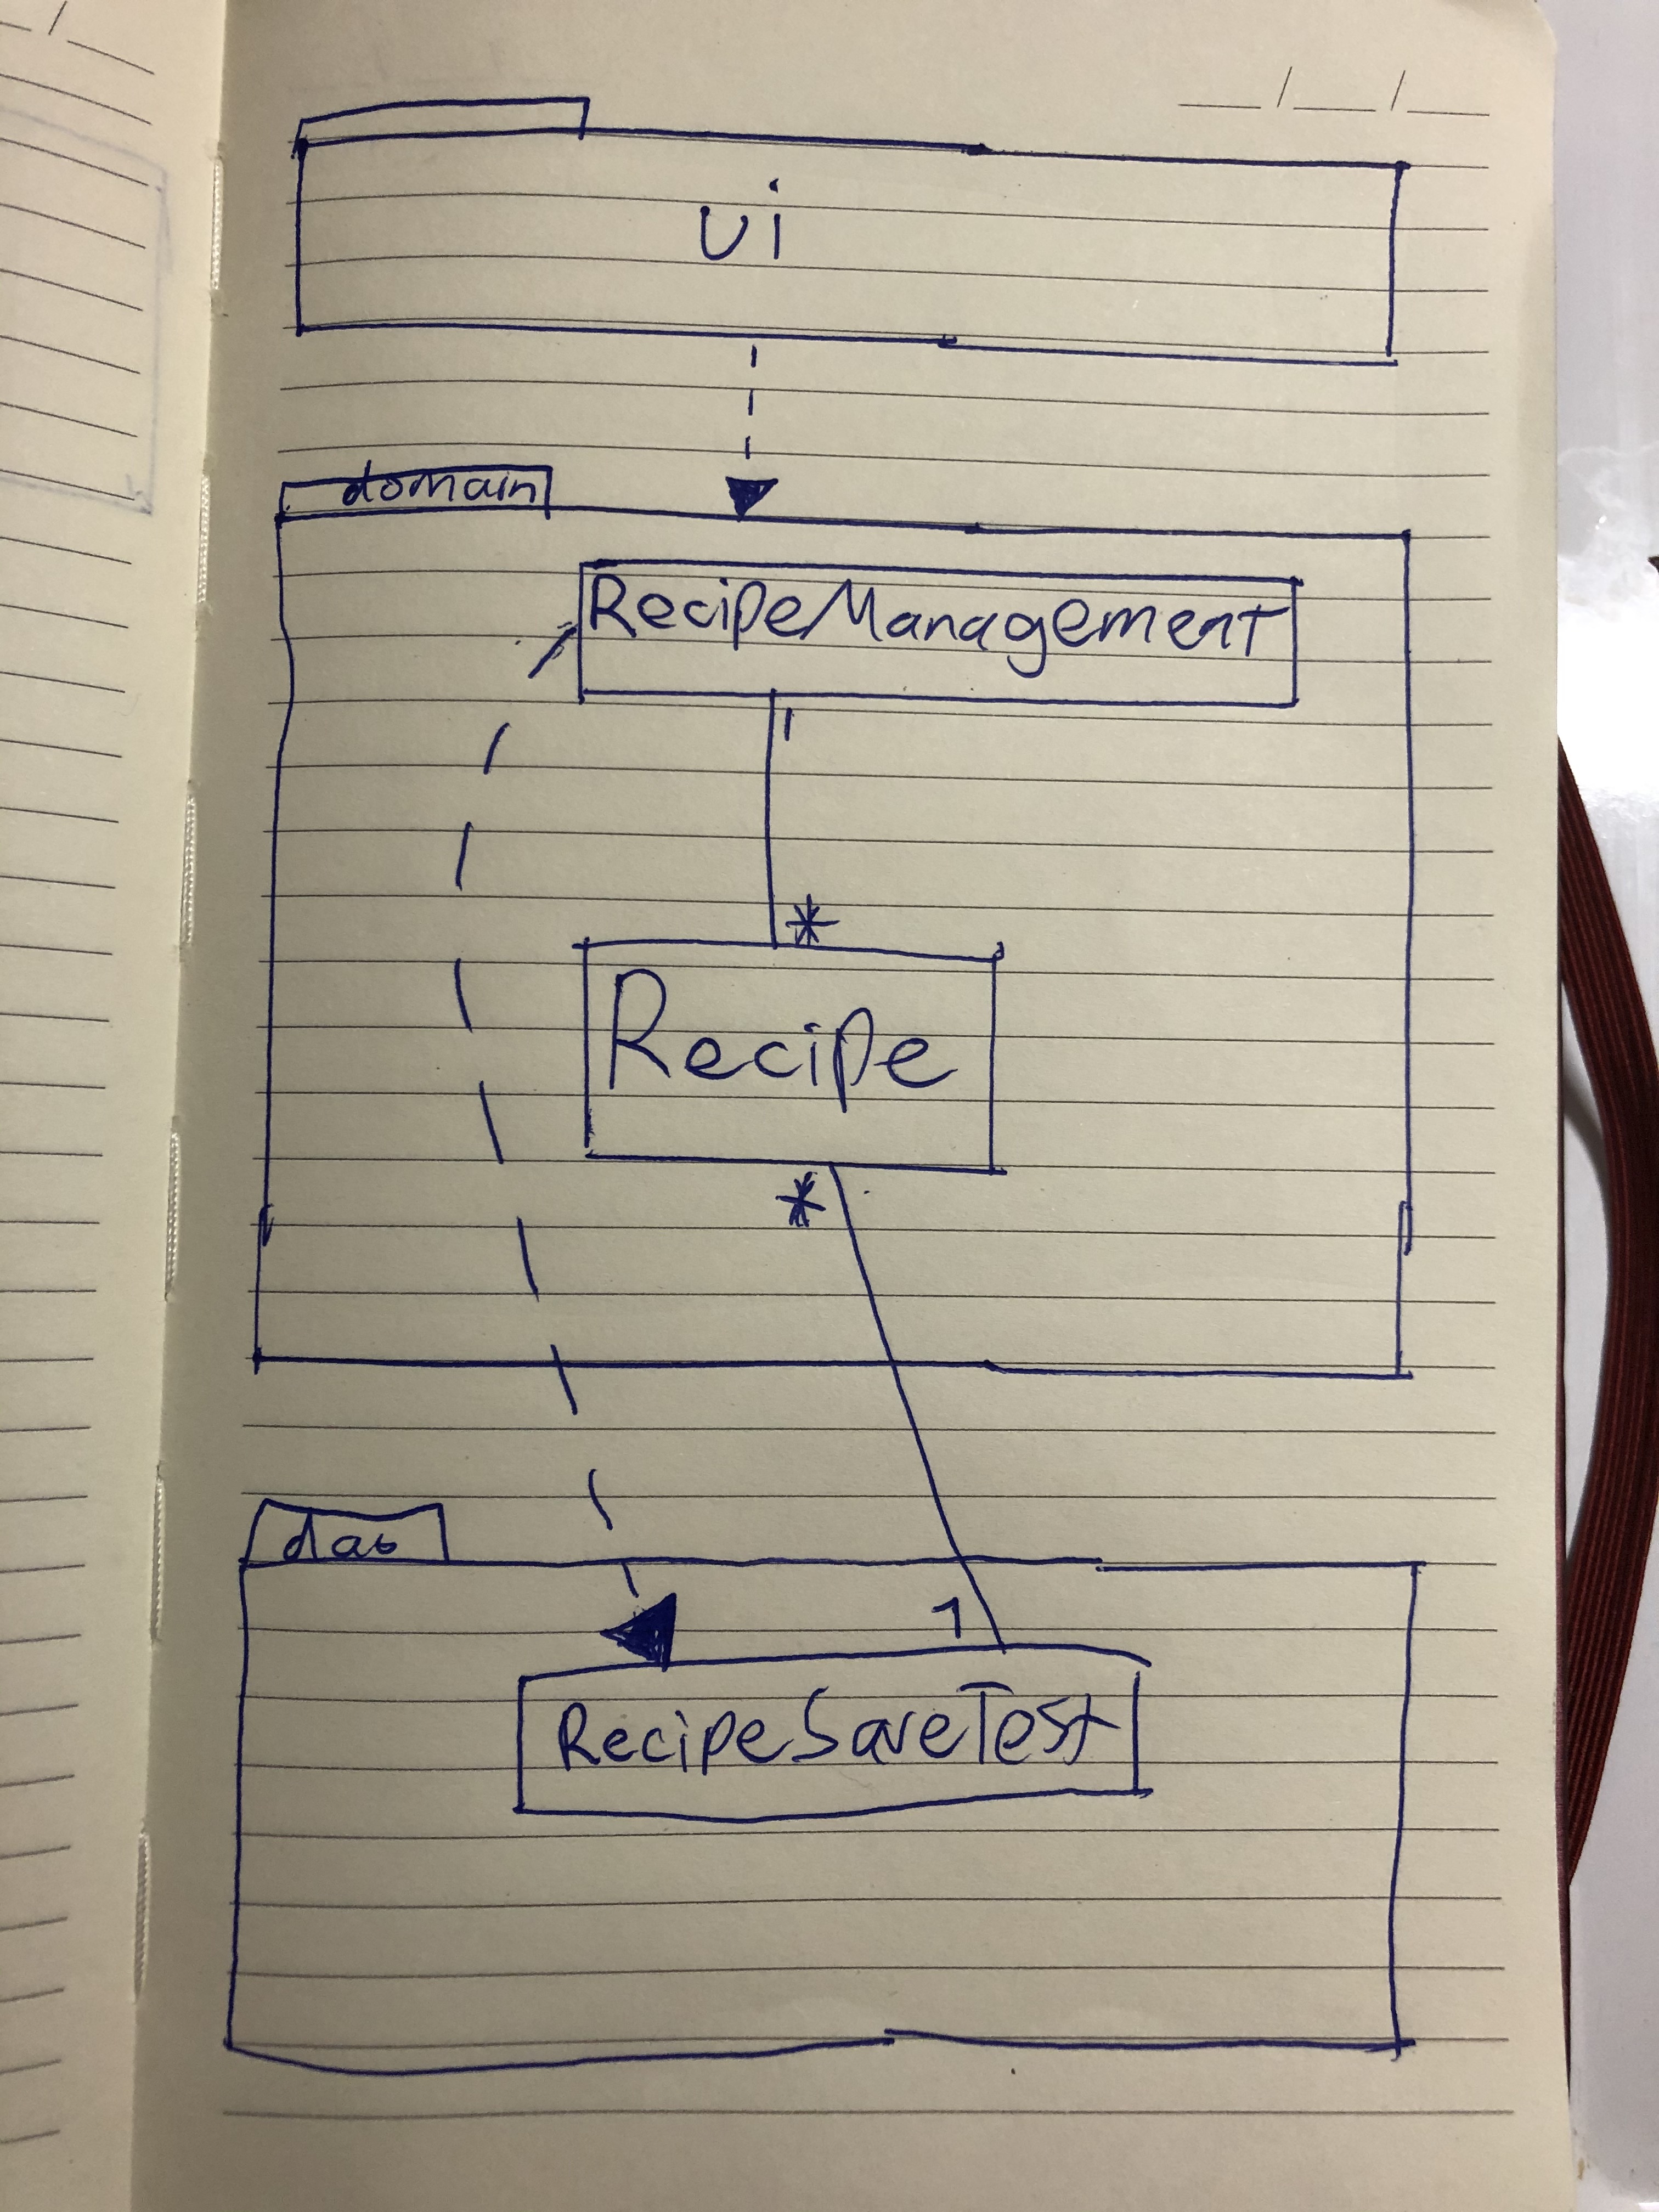 ui
domain
RecipeManagement
1
*
Recipe
*
dao
1
RecipeSaveTest